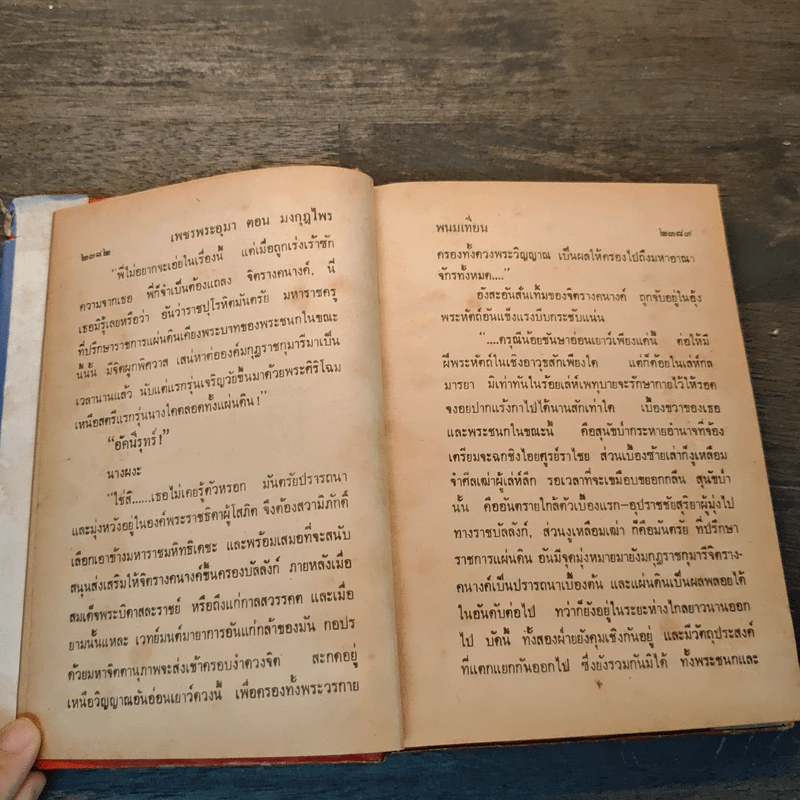 เพชรพระอุมา ตอน มงกุฎไพร
๒๓๘๒
"พี่ไม่อยากจะเอ่ยในเรื่องนี้ แต่เมื่อถูกเร่งเร้าซัก
ความจากเธอ พี่ก็จำเป็นต้องแถลง จิตรางคนางค์, นี่
เธอมิรู้เลยหรือว่า อันว่าราชปุโรหิตมันตรัย มหาราชครู
ที่ปรึกษาราชการแผ่นดินเคียงพระบาทของพระชนกในขณะ
นี้นั้น มีจิตผูกพิศวาส เสน่หาต่อองค์มกุฎราชกุมารีมาเป็น
เวลานานแล้ว นับแต่แรกรุ่นเจริญวัยขึ้นมาด้วยพระศิริโฉม
เหนือสตรีแรกรุ่นนางใดตลอดทั้งแผ่นดิน!"
"อัคนีรุทร์!"
นางผงะ
"ใช่สิ......เธอไม่เคยรู้ตัวหรอก มันตรัยปรารถนา
และมุ่งหวังอยู่ในองค์พระราชธิดาผู้โสภิต จึงต้องสวามิภักดิ์
เลือกเอาข้างมหาราชมหิทธิเดชะ และพร้อมเสมอที่จะสนับ
สนุนส่งเสริมให้จิตรางคนางค์ขึ้นครองบัลลังก์ ภายหลังเมื่อ
สมเด็จพระบิดาสละราชย์ หรือถึงแก่กาลสวรรคต และเมื่อ
ยามนั้นแหละ เวทย์มนต์มายาการอันแก่กล้าของมัน กอปร
ด้วยมหาจิตตานุภาพจะส่งเข้าครอบงำดวงจิต สะกดอยู่
เหนือวิญญาณอันอ่อนเยาว์ดวงนี้ เพื่อครองทั้งพระวรกาย
พนมเทียน
๒๓๘๓
ครองทั้งดวงพระวิญญาณ เป็นผลให้ครองไปถึงมหาอาณา
จักรทั้งหมด...."
อังสะอันสั่นเทิ้มของจิตรางคนางค์ ถูกจับอยู่ในอุ้ง
พระหัตถ์อันแข็งแรงบีบกระชับแน่น
"....ดรุณีน้อยชันษาอ่อนเยาว์เพียงแค่นี้ ต่อให้มี
ฝีพระหัตถ์ในเชิงอาวุธสักเพียงใด แต่ก็ด้อยในเล่ห์กล
มารยา มิเท่าทันในร้อยเล่ห์เพทุบายจะรักษากายไว้ให้รอด
จงอยปากแร้งกาไปได้นานสักเท่าใด เบื้องขวาของเธอ
และพระชนกในขณะนี้ คือสุนัขป่ากระหายอำนาจที่จ้อง
เตรียมจะฉกชิงไอยศูรย์ราไชย ส่วนเบื้องซ้ายเล่าก็งูเหลือม
จำศีลเฒ่าผู้เล่ห์ลึก รอเวลาที่จะเขมือบขยอกกลืน สุนัขป่า
นั้น คืออันตรายใกล้ตัวเบื้องแรก–อุปราชชัยสุริยาผู้มุ่งไป
ทางราชบัลลังก์, ส่วนงูเหลือมเฒ่า ก็คือมันตรัย ที่ปรึกษา
ราชการแผ่นดิน อันมีจุดมุ่งหมายมายังมกุฎราชกุมารีจิตราง-
คนางค์เป็นปรารถนาเบื้องต้น และแผ่นดินเป็นผลพลอยได้
ในอันดับต่อไป ทว่าก็ยังอยู่ในระยะห่างไกลยาวนานออก
ไป บัดนี้ ทั้งสองฝ่ายยังคุมเชิงกันอยู่ และมีวัตถุประสงค์
ที่แตกแยกกันออกไป ซึ่งยังรวมกันมิได้ ทั้งพระชนกและ